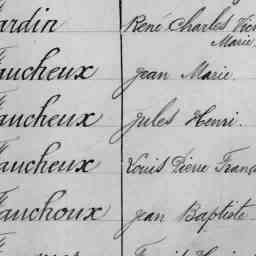 ardin René Charles
Marie
Faucheux Jean Marie.
Faucheux Jules Henri.
Faucheux Louis Pierre
Fauchoux Jean Baptiste